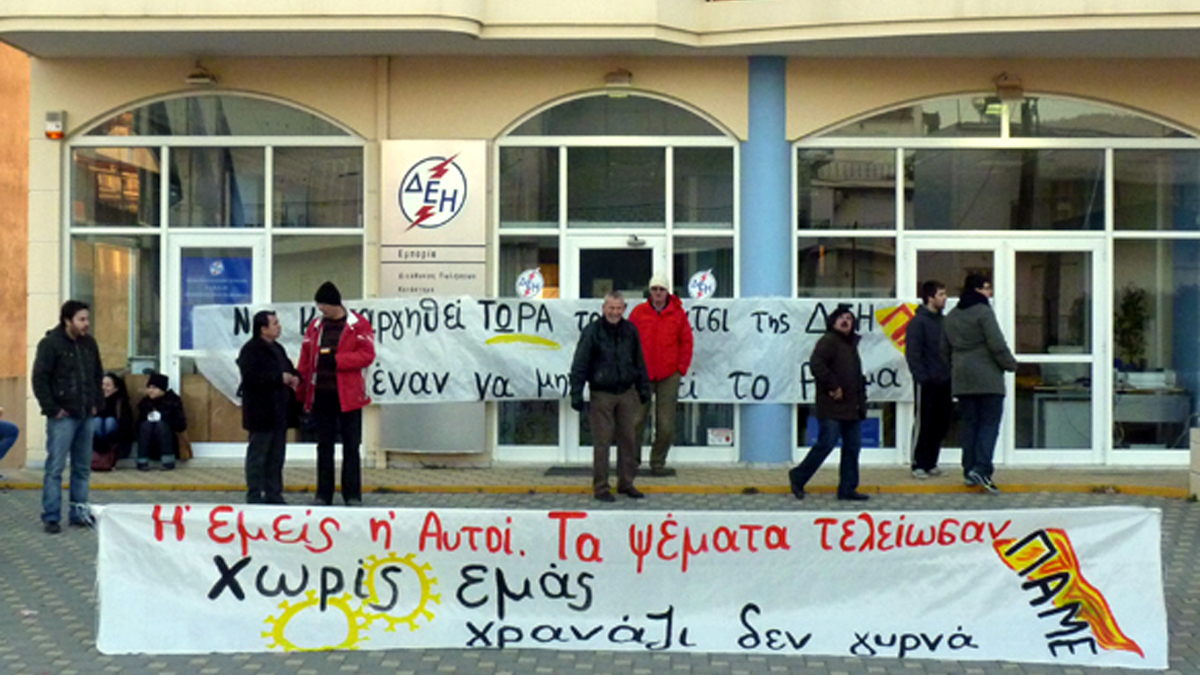 ΔΕΗ
Εμπορία
Διεύθυνση Πωλήσεων
Κατάστημα
ΔΕΗ
ΔΕΗ
ΤΩΡΑ της ΔΕΗ
να το
Η' Εμείς η' Αυτοί. Τα ψέματα τελείωσαν
Χωρίς εμάς
χρανάζι δεν γυρνά
ΠΑΜΕ